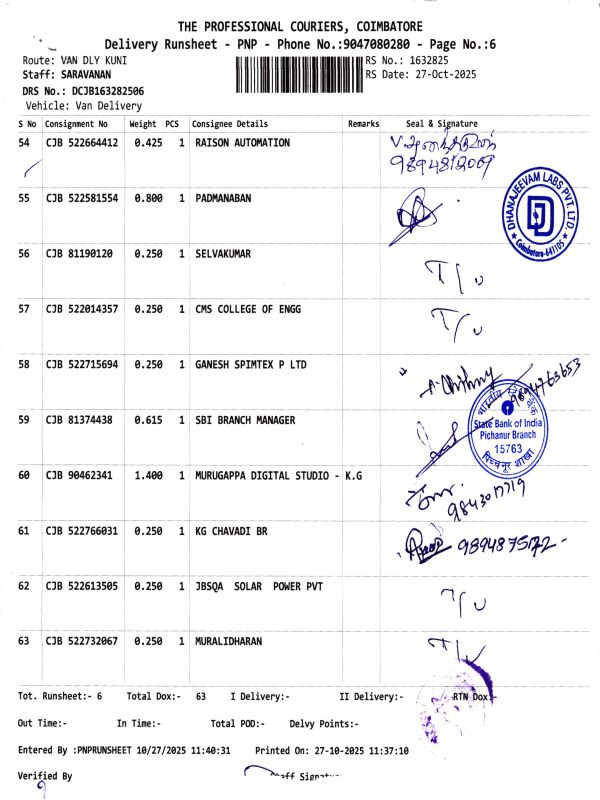 THE PROFESSIONAL COURIERS, COIMBATORE
Delivery Runsheet - PNP - Phone No.:9047080280 - Page No.:6
Route: VAN DLY KUNI RS No.: 1632825
Staff: SARAVANAN RS Date: 27-Oct-2025
DRS No.: DCJB163282506
Vehicle: Van Delivery
S No Consignment No Weight PCS Consignee Details Remarks Seal & Signature
54 CJB 522664412 0.425 1 RAISON AUTOMATION
55 CJB 522581554 0.800 1 PADMANABAN
DHANAJEEVAM LABS PVT. LTD.
Coimbatore-641105
56 CJB 81190120 0.250 1 SELVAKUMAR T/U
57 CJB 522014357 0.250 1 CMS COLLEGE OF ENGG T/U
58 CJB 522715694 0.250 1 GANESH SPIMTEX P LTD
59 CJB 81374438 0.615 1 SBI BRANCH MANAGER
State Bank of India
Pichanur Branch
15763
60 CJB 90462341 1.400 1 MURUGAPPA DIGITAL STUDIO - K.G
61 CJB 522766031 0.250 1 KG CHAVADI BR
62 CJB 522613505 0.250 1 JBSQA SOLAR POWER PVT T/U
63 CJB 522732067 0.250 1 MURALIDHARAN T/U
Tot. Runsheet:- 6 Total Dox:- 63 I Delivery:- II Delivery:- RTN Dox:-
Out Time:- In Time:- Total POD:- Delvy Points:-
Entered By :PNPRUNSHEET 10/27/2025 11:40:31 Printed On: 27-10-2025 11:37:10
Verified By